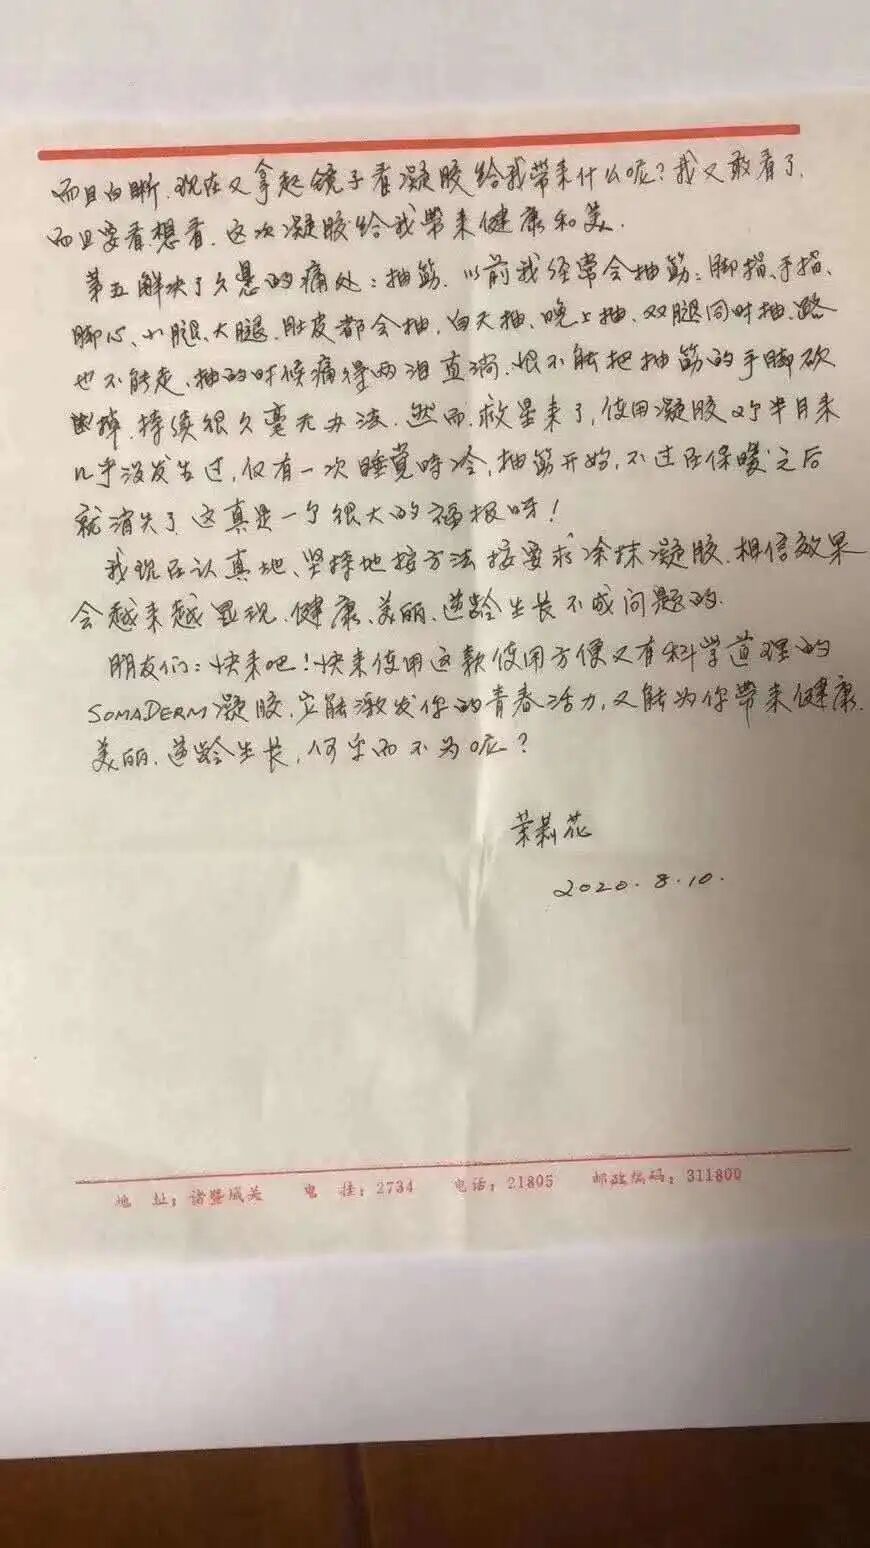 而且白晰。现在又拿起镜子看凝胶给我带来什么呢？我又敢看了，
而且要看想看。这次凝胶给我带来健康和美。
第五解决了久患的痛处：抽筋。以前我经常会抽筋：脚指、手指、
脚心、小腿、大腿、肚皮都会抽，白天抽、晚上抽、双腿同时抽、路
也不能走、抽的时候痛得两泪直淌，恨不能把抽筋的手脚砍
掉，持续很久毫无办法。然而，救星来了，使用凝胶2个半月来
几乎没发生过，仅有一次睡觉时冷，抽筋开始，不过在保暖之后
就消失了，这真是一个很大的福报呀！
我现在认真地、坚持地按方法按要求涂抹凝胶，相信效果
会越来越显现，健康、美丽、逆龄生长不成问题的。
朋友们：快来吧！快来使用这款使用方便又有科学道理的
SOMADERM凝胶，它能激发你的青春活力，又能为你带来健康、
美丽、逆龄生长，何乐而不为呢？
茉莉花
2020.8.10.
地 址：诸暨城关 电 挂：2734 电话：21805 邮政编码：311800